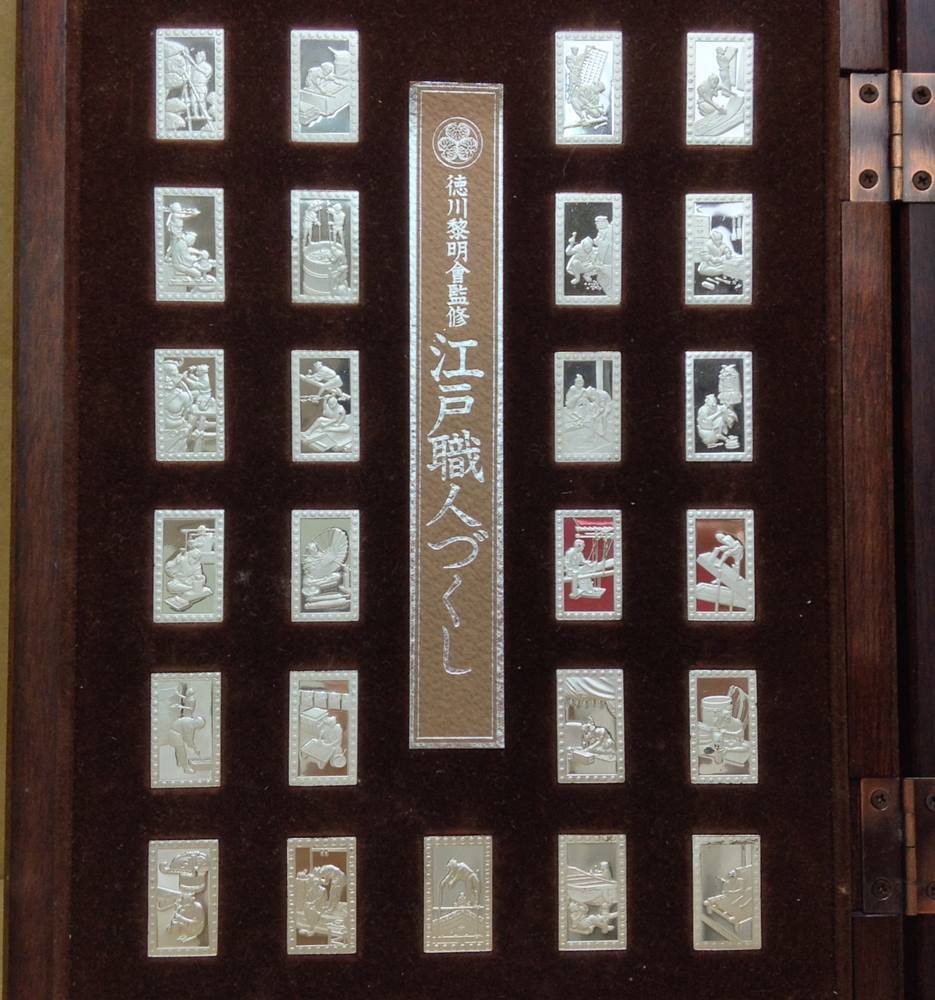 徳川黎明會監修
江戸職人づくし